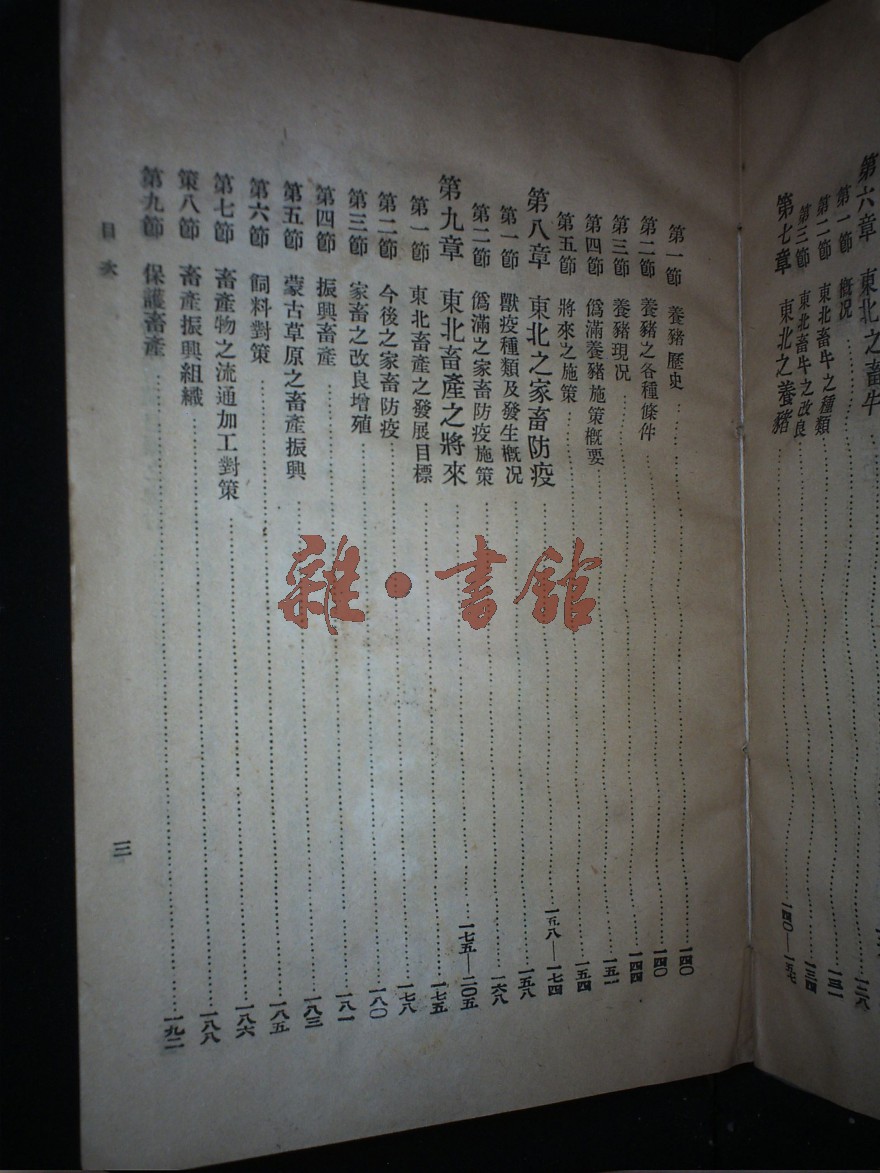 第六章　東北之畜牛
第一節　概況……一二八
第二節　東北畜牛之種類……一三一
第三節　東北畜牛之改良……一三四
第七章　東北之養豬……一四〇—一五七
第一節　養豬歷史……一四〇
第二節　養豬之各種條件……一四〇
第三節　養豬現況……一四四
第四節　僞滿養豬施策概要……一五一
第五節　將來之施策……一五四
第八章　東北之家畜防疫……一五八—一七四
第一節　獸疫種類及發生概況……一五八
第二節　僞滿之家畜防疫施策……一六八
第九章　東北畜產之將來……一七五—一〇五
第一節　東北畜產之發展目標……一七五
第二節　今後之家畜防疫……一七八
第三節　家畜之改良增殖……一八〇
第四節　振興畜產……一八一
第五節　蒙古草原之畜產振興……一八三
第六節　飼料對策……一八五
第七節　畜產物之流通加工對策……一八六
策八節　畜產振興組織……一八八
第九節　保護畜產……一九二
目次
三
雜·書館